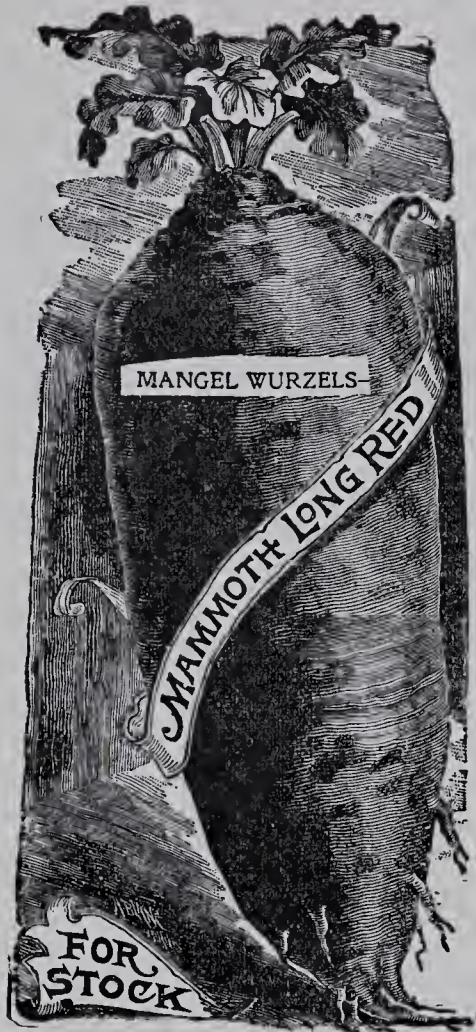 MANGEL WURZELS-
MAMMOTH LONG RED
FOR
STOCK